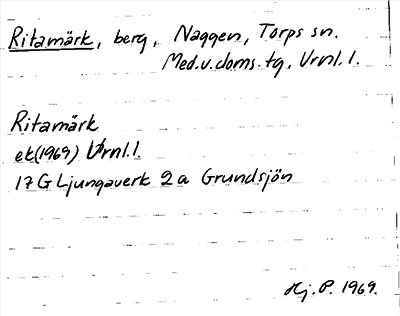 Ritamärk, berg, Naggen, Torps sn.
Med.v.doms.tg. Vrnl.l.
Ritamärk
ek(1969) Vrnl.l.
17G Ljungaverk 2a Grundsjön
Hj.P. 1969.